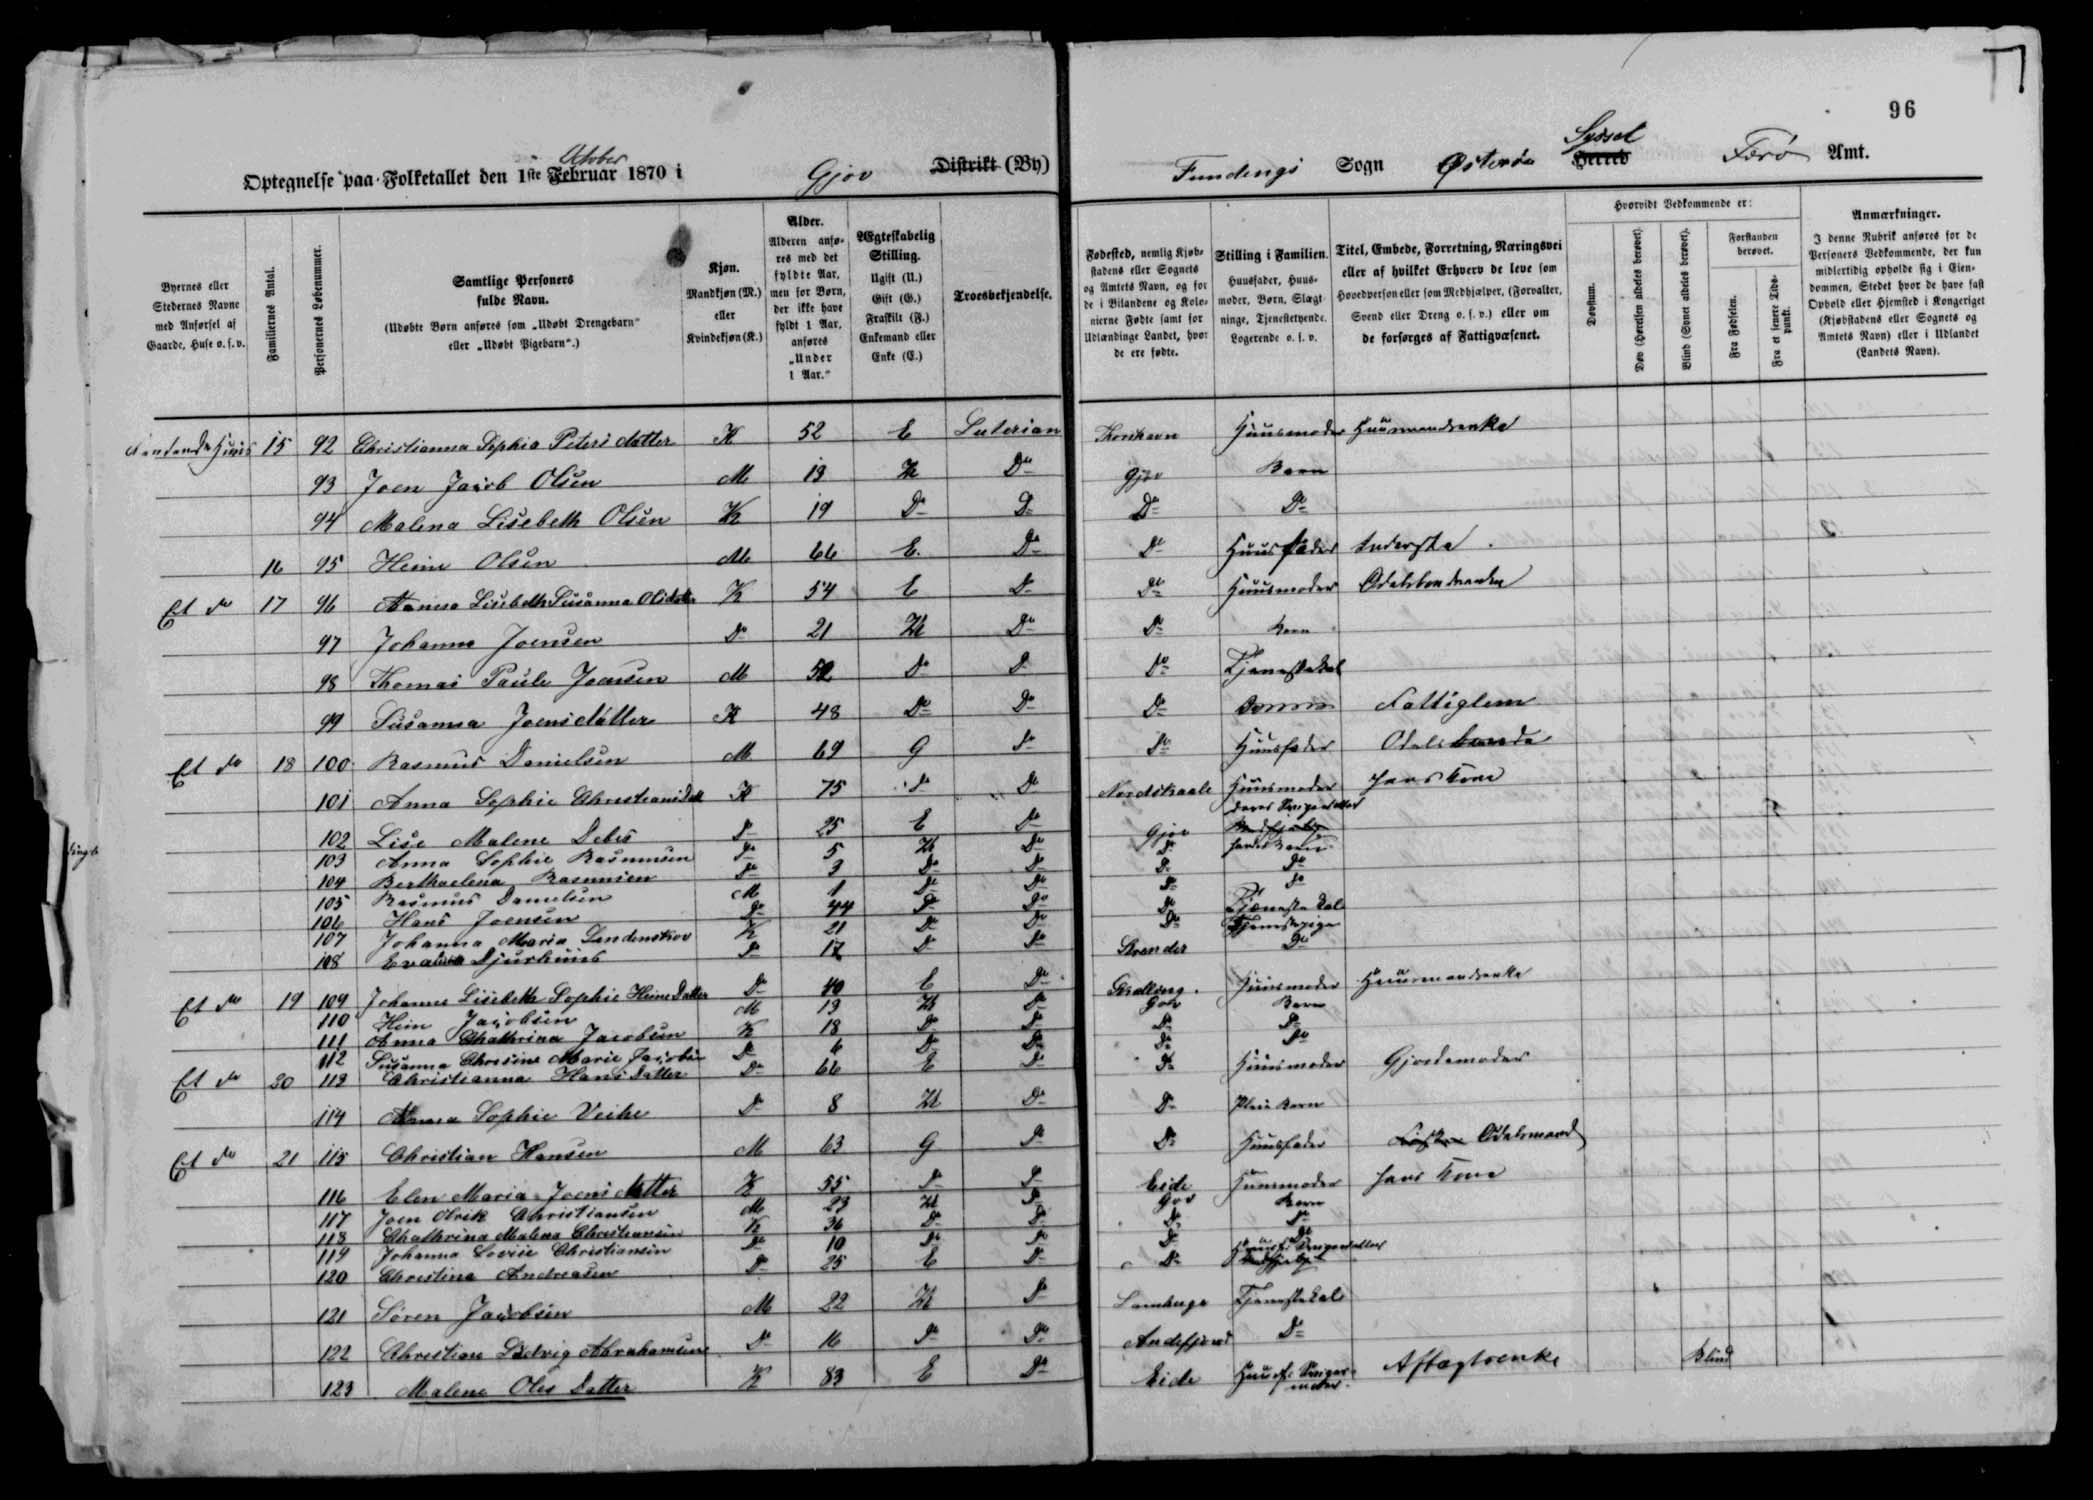 96
October
Syssel
Optegnelse paa Folketallet den 1ste Februar 1870 i Gjov Distrikt (By) Fundings Sogn Østerøe Herred Færø Amt.
Byernes eller Stedernes Navne med Anførsel af Gaarde, Huse o. s. v.
Familiernes Antal.
Personernes Løbenummer.
Samtlige Personers fulde Navn.
(Udøbte Børn anføres som „Udøbt Drengebarn“ eller „Udøbt Pigebarn“.)
Kjøn.
Mandkjøn (M.) eller Kvindekjøn (K.)
Alder.
Alderen anføres med det fyldte Aar, men for Børn, der ikke have fyldt 1 Aar, anføres „Under 1 Aar.“
Ægteskabelig Stilling.
Ugift (U.) Gift (G.) Fraskilt (F.) Enkemand eller Enke (E.)
Troesbekjendelse.
Fødested, nemlig Kjøbstadens eller Sognets og Amtets Navn, og for de i Bilandene og Kolonierne Fødte samt for Udlændinge Landet, hvor de ere fødte.
Stilling i Familien.
Huusfader, Huusmoder, Børn, Slægtninge, Tjenestetyende. Logerende o. s. v.
Titel, Embede, Forretning, Næringsvei eller af hvilket Erhverv de leve som Hovedperson eller som Medhjælper, (Forvalter, Svend eller Dreng o. s. v.) eller om de forsørges af Fattigvæsenet.
Hvorvidt Vedkommende er:
Døvstum.
Døv (Hørelsen aldeles berøvet).
Blind (Synet aldeles berøvet).
Forstanden berøvet.
Fra Fødselen.
Fra et senere Tidspunkt.
Anmærkninger.
I denne Rubrik anføres for de Personers Vedkommende, der kun midlertidig opholde sig i Eiendommen, Stedet hvor de have fast Ophold eller Hjemsted i Kongeriget (Kjøbstadens eller Sognets og Amtets Navn) eller i Udlandet (Landets Navn).
15 92 Christianna Sophia Peters datter K 52 E Luterian Thorshavn Huusmoder Huusmandsenke
93 Joen Jacob Olsen M 13 U Do Gjov Barn
94 Malena Lisebeth Olsen K 19 Do Do Do Do
16 95 Heine Olsen M 66 E. Do Do Huusfader Inderste
Et do 17 96 Hanna Lisebeth Susanna Olsdatter K 54 E Do Do Huusmoder Odelsbondeenke
97 Johanna Joensen Do 21 U Do Do Barn
98 Thomas Paule Joensen M 52 Do Do Do Tjenestekal
99 Susanna Joensdatter K 48 Do Do Do Fattiglem
Et do 18 100 Rasmus Danielsen M 69 G Do Do Huusfader Odelsbonde
101 Anna Sophie Christiansdat K 75 Do Do Nordskaale Huusmoder hans Kone
102 Lise Malene Debes Do 25 E Do Gjov deres Svigerdatter
103 Anna Sophie Rasmusen Do 5 U Do Do hendes Barn
104 Berthaelena Rasmusen Do 3 Do Do Do Do
105 Rasmus Danielsen M 1 Do Do Do Do
106 Hans Joensen Do 44 Do Do Do Tjenestekal
107 Johanna Maria Lendenskov K 21 Do Do Do Tjenestepige
108 Djurhuus Do 17 Do Do Strender Do
Et do 19 109 Johanna Lisebeth Sophie Heinedatter Do 40 E Do Skelling Huusmoder Huusmandsenke
110 Hein Jacobsen M 13 U Do Gov Barn
111 Anna Chathrina Jacobsen K 18 Do Do Do Do
112 Susanna Chresine Marie Jacobsen Do 6 Do Do Do Do
Et do 20 113 Christianna Hansdatter Do 66 E Do Do Huusmoder Gjordemoder
114 Anna Sophie Veihe Do 8 U Do Do Pleie Barn
Et do 21 115 Christian Hansen M 63 G Do Do Huusfader Odelsmand
116 Elen Maria Joensdatter K 55 Do Do Eide Huusmoder hans Kone
117 Joen Olrik Christiansen M 23 U Do Gov Barn
118 Chathrina Malena Christiansen K 36 Do Do Do Do
119 Johanna Lovise Christiansen Do 10 Do Do Do Do
120 Christina Andreasen Do 25 E Do Do Huusf. Svigerdatter
121 Søren Jacobsen M 22 U Do Lamhauge Tjenestekal
122 Christian Ludvig Abrahamsen Do 16 Do Do Andefjord Do
123 Malene Oles Datter K 83 E Do Eide Huusf. Svigermoder Aftægtsenke Blind